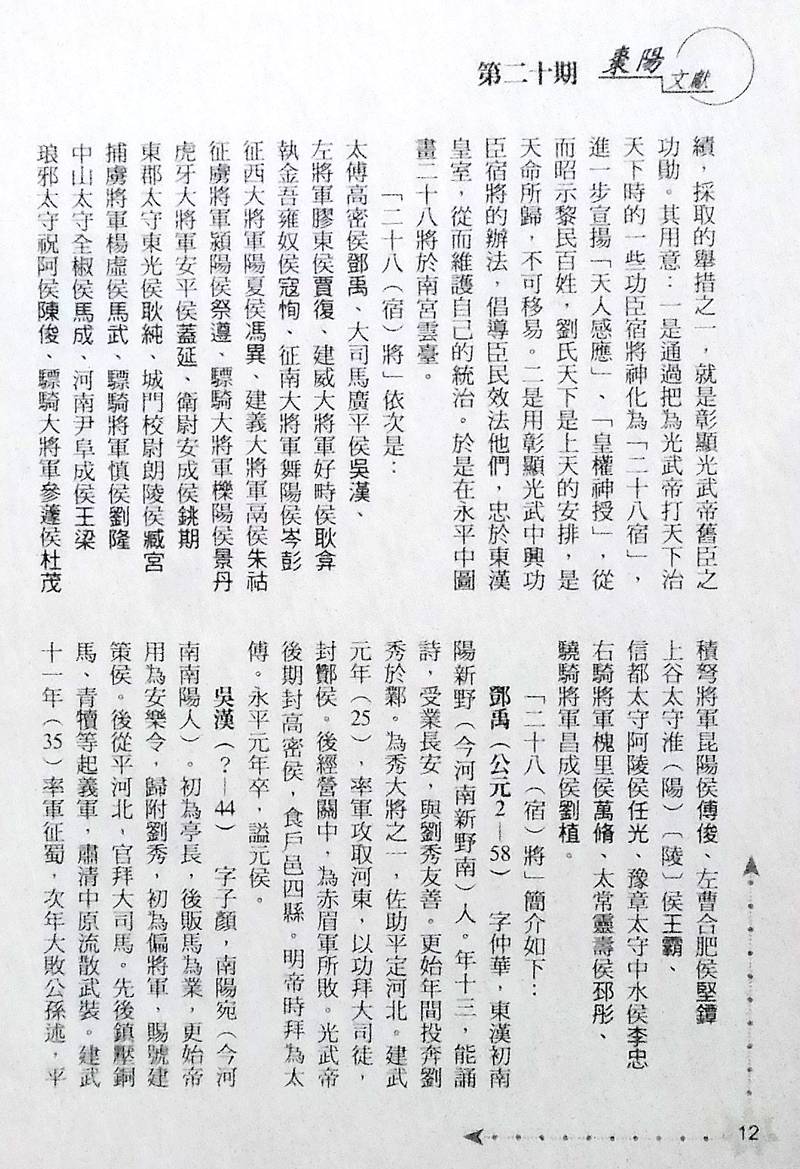 第二十期
棗陽
文獻
績，採取的舉措之一，就是彰顯光武帝舊臣之
功勛。其用意：一是通過把為光武帝打天下治
天下時的一些功臣宿將神化為「二十八宿」，
進一步宣揚「天人感應」、「皇權神授」，從
而昭示黎民百姓，劉氏天下是上天的安排，是
天命所歸，不可移易。二是用彰顯光武中興功
臣宿將的辦法，倡導臣民效法他們，忠於東漢
皇室，從而維護自己的統治。於是在永平中圖
畫二十八將於南宮雲臺。
「二十八（宿）將」依次是：
太傅高密侯鄧禹、大司馬廣平侯吳漢、
左將軍膠東侯賈復、建威大將軍好畤侯耿弇
執金吾雍奴侯寇恂、征南大將軍舞陽侯岑彭
征西大將軍陽夏侯馮異、建義大將軍鬲侯朱祜
征虜將軍潁陽侯祭遵、驃騎大將軍櫟陽侯景丹
虎牙大將軍安平侯蓋延、衛尉安成侯銚期
東郡太守東光侯耿純、城門校尉朗陵侯臧宮
捕虜將軍楊虛侯馬武、驃騎將軍慎侯劉隆
中山太守全椒侯馬成、河南尹阜成侯王梁
琅邪太守祝阿侯陳俊、驃騎大將軍參蘧侯杜茂
積弩將軍昆陽侯傅俊、左曹合肥侯堅鐔
上谷太守淮（陽）〔陵〕侯王霸、
信都太守阿陵侯任光、豫章太守中水侯李忠
右騎將軍槐里侯萬脩、太常靈壽侯邳彤、
驍騎將軍昌成侯劉植。
「二十八（宿）將」簡介如下：
鄧禹（公元2—58） 字仲華，東漢初南
陽新野（今河南新野南）人。年十三，能誦
詩，受業長安，與劉秀友善。更始年間投奔劉
秀於鄴。為秀大將之一，佐助平定河北。建武
元年（25），率軍攻取河東，以功拜大司徒，
封酇侯。後經營關中，為赤眉軍所敗。光武帝
後期封高密侯，食戶邑四縣。明帝時拜為太
傅。永平元年卒，謚元侯。
吳漢（？—44） 字子顏，南陽宛（今河
南南陽人）。初為亭長，後販馬為業，更始帝
用為安樂令，歸附劉秀，初為偏將軍，賜號建
策侯。後從平河北，官拜大司馬。先後鎮壓銅
馬、青犢等起義軍，肅清中原流散武裝。建武
十一年（35）率軍征蜀，次年大敗公孫述，平
12